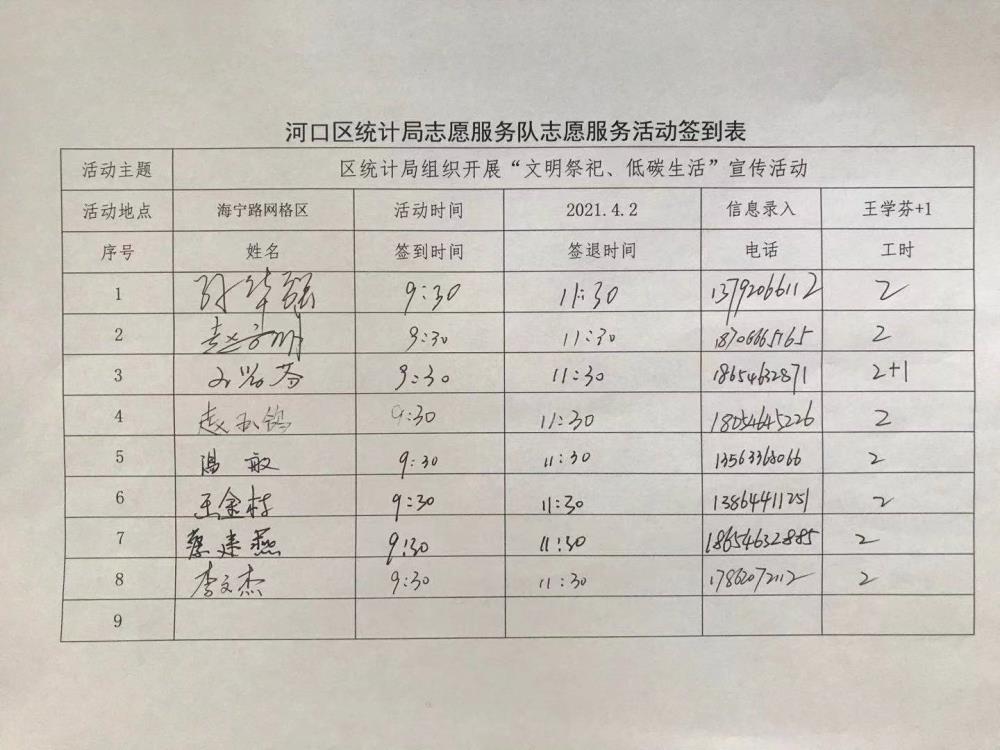 河口区统计局志愿服务队志愿服务活动签到表
活动主题 区统计局组织开展“文明祭祀、低碳生活”宣传活动
活动地点 海宁路网格区 活动时间 2021.4.2 信息录入 王学芬+1
序号 姓名 签到时间 签退时间 电话 工时
1 9:30 11:30 13792066112 2
2 赵 明 9:30 11:30 18706665165 2
3 9:30 11:30 18654632871 2+1
4 赵 鸽 9:30 11:30 18054645226 2
5 温敏 9:30 11:30 13563368066 2
6 王金村 9:30 11:30 13864411251 2
7 蔡建燕 9:30 11:30 18654632885 2
8 李文杰 9:30 11:30 2
9